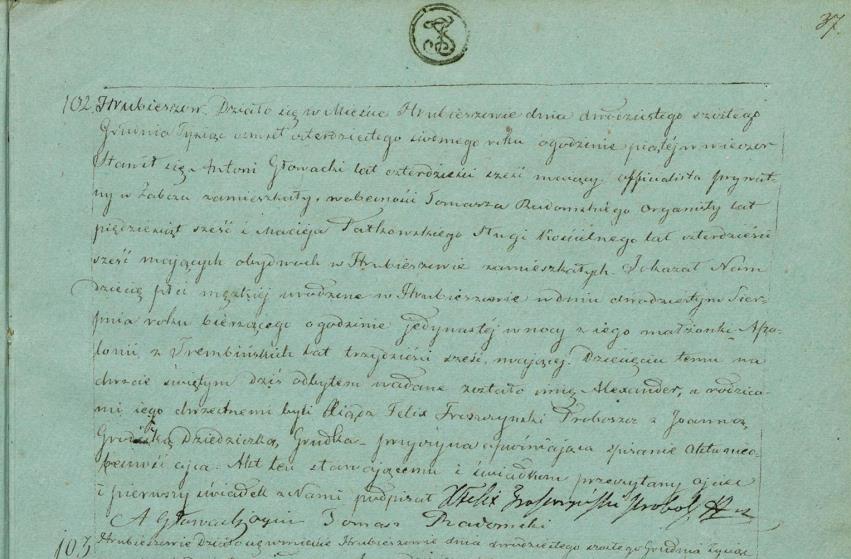 37.
102. Hrubieszow. Działo się w Mieście Hrubieszowie dnia dwudziestego szóstego
Grudnia Tysiąc ośmset czterdziestego siódmego roku o godzinie piątej w wieczor
Stawił się Antoni Głowacki lat czterdzieści sześć mający officialista prywat-
ny w zamieszkały, w obecności Tomasza Radomskiego Organisty lat
pięćdziesiąt sześć i Macieja Sługi Kościelnego lat czterdzieści
sześć mających obydwoch w Hrubieszowie zamieszkałych. Jokazał Nam
dziecię płci męzkiej urodzone w Hrubieszowie w dniu dwudziestym Sier-
pnia roku bieżącego o godzinie jedynastej w nocy z iego małżonki Apo-
lonii z Trembińskich lat trzydzieści sześć mającej. Dziecięciu temu na
chrzcie świętym dziś odbytem nadane zostało imię Alexander, a rodzica-
mi iego chrzestnemi byli Xiądz Felix Proboszcz z Joanną
Dziedziczką Grudka przyczyna opóźniająca spisanie Aktu nieo-
becność ojca. Akt ten stawającemu i świadkom przeczytany ojciec
i pierwszy świadek z Nami podpisał X Felix
A Głowacki Tomasz Radomski
103. Hrubieszowie Działo się w mieście Hrubieszowie dnia dwudziestego szóstego Grudnia Tysiąc